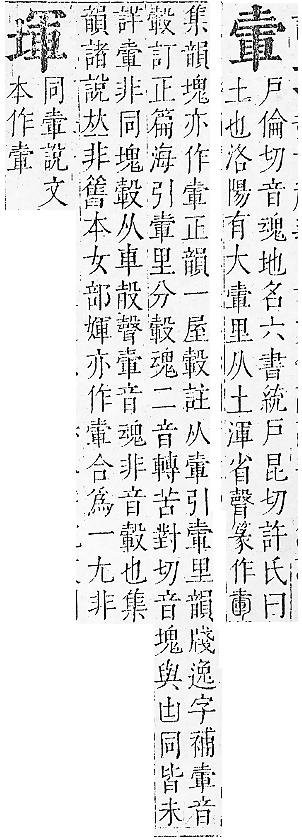 戶倫切音魂地名六書統戶昆切許氏曰
土也洛陽有大里从土渾省聲篆作
集韻塊亦作正韻一屋轂註从引里韻牋逸字補音
轂訂正篇海引里分轂魂二音轉苦對切音塊與凷同皆未
詳非同塊轂从車㱿聲音魂非音轂也集
韻諸說𠀤非舊本女部媈亦作合爲一尢非
堚
同說文
本作